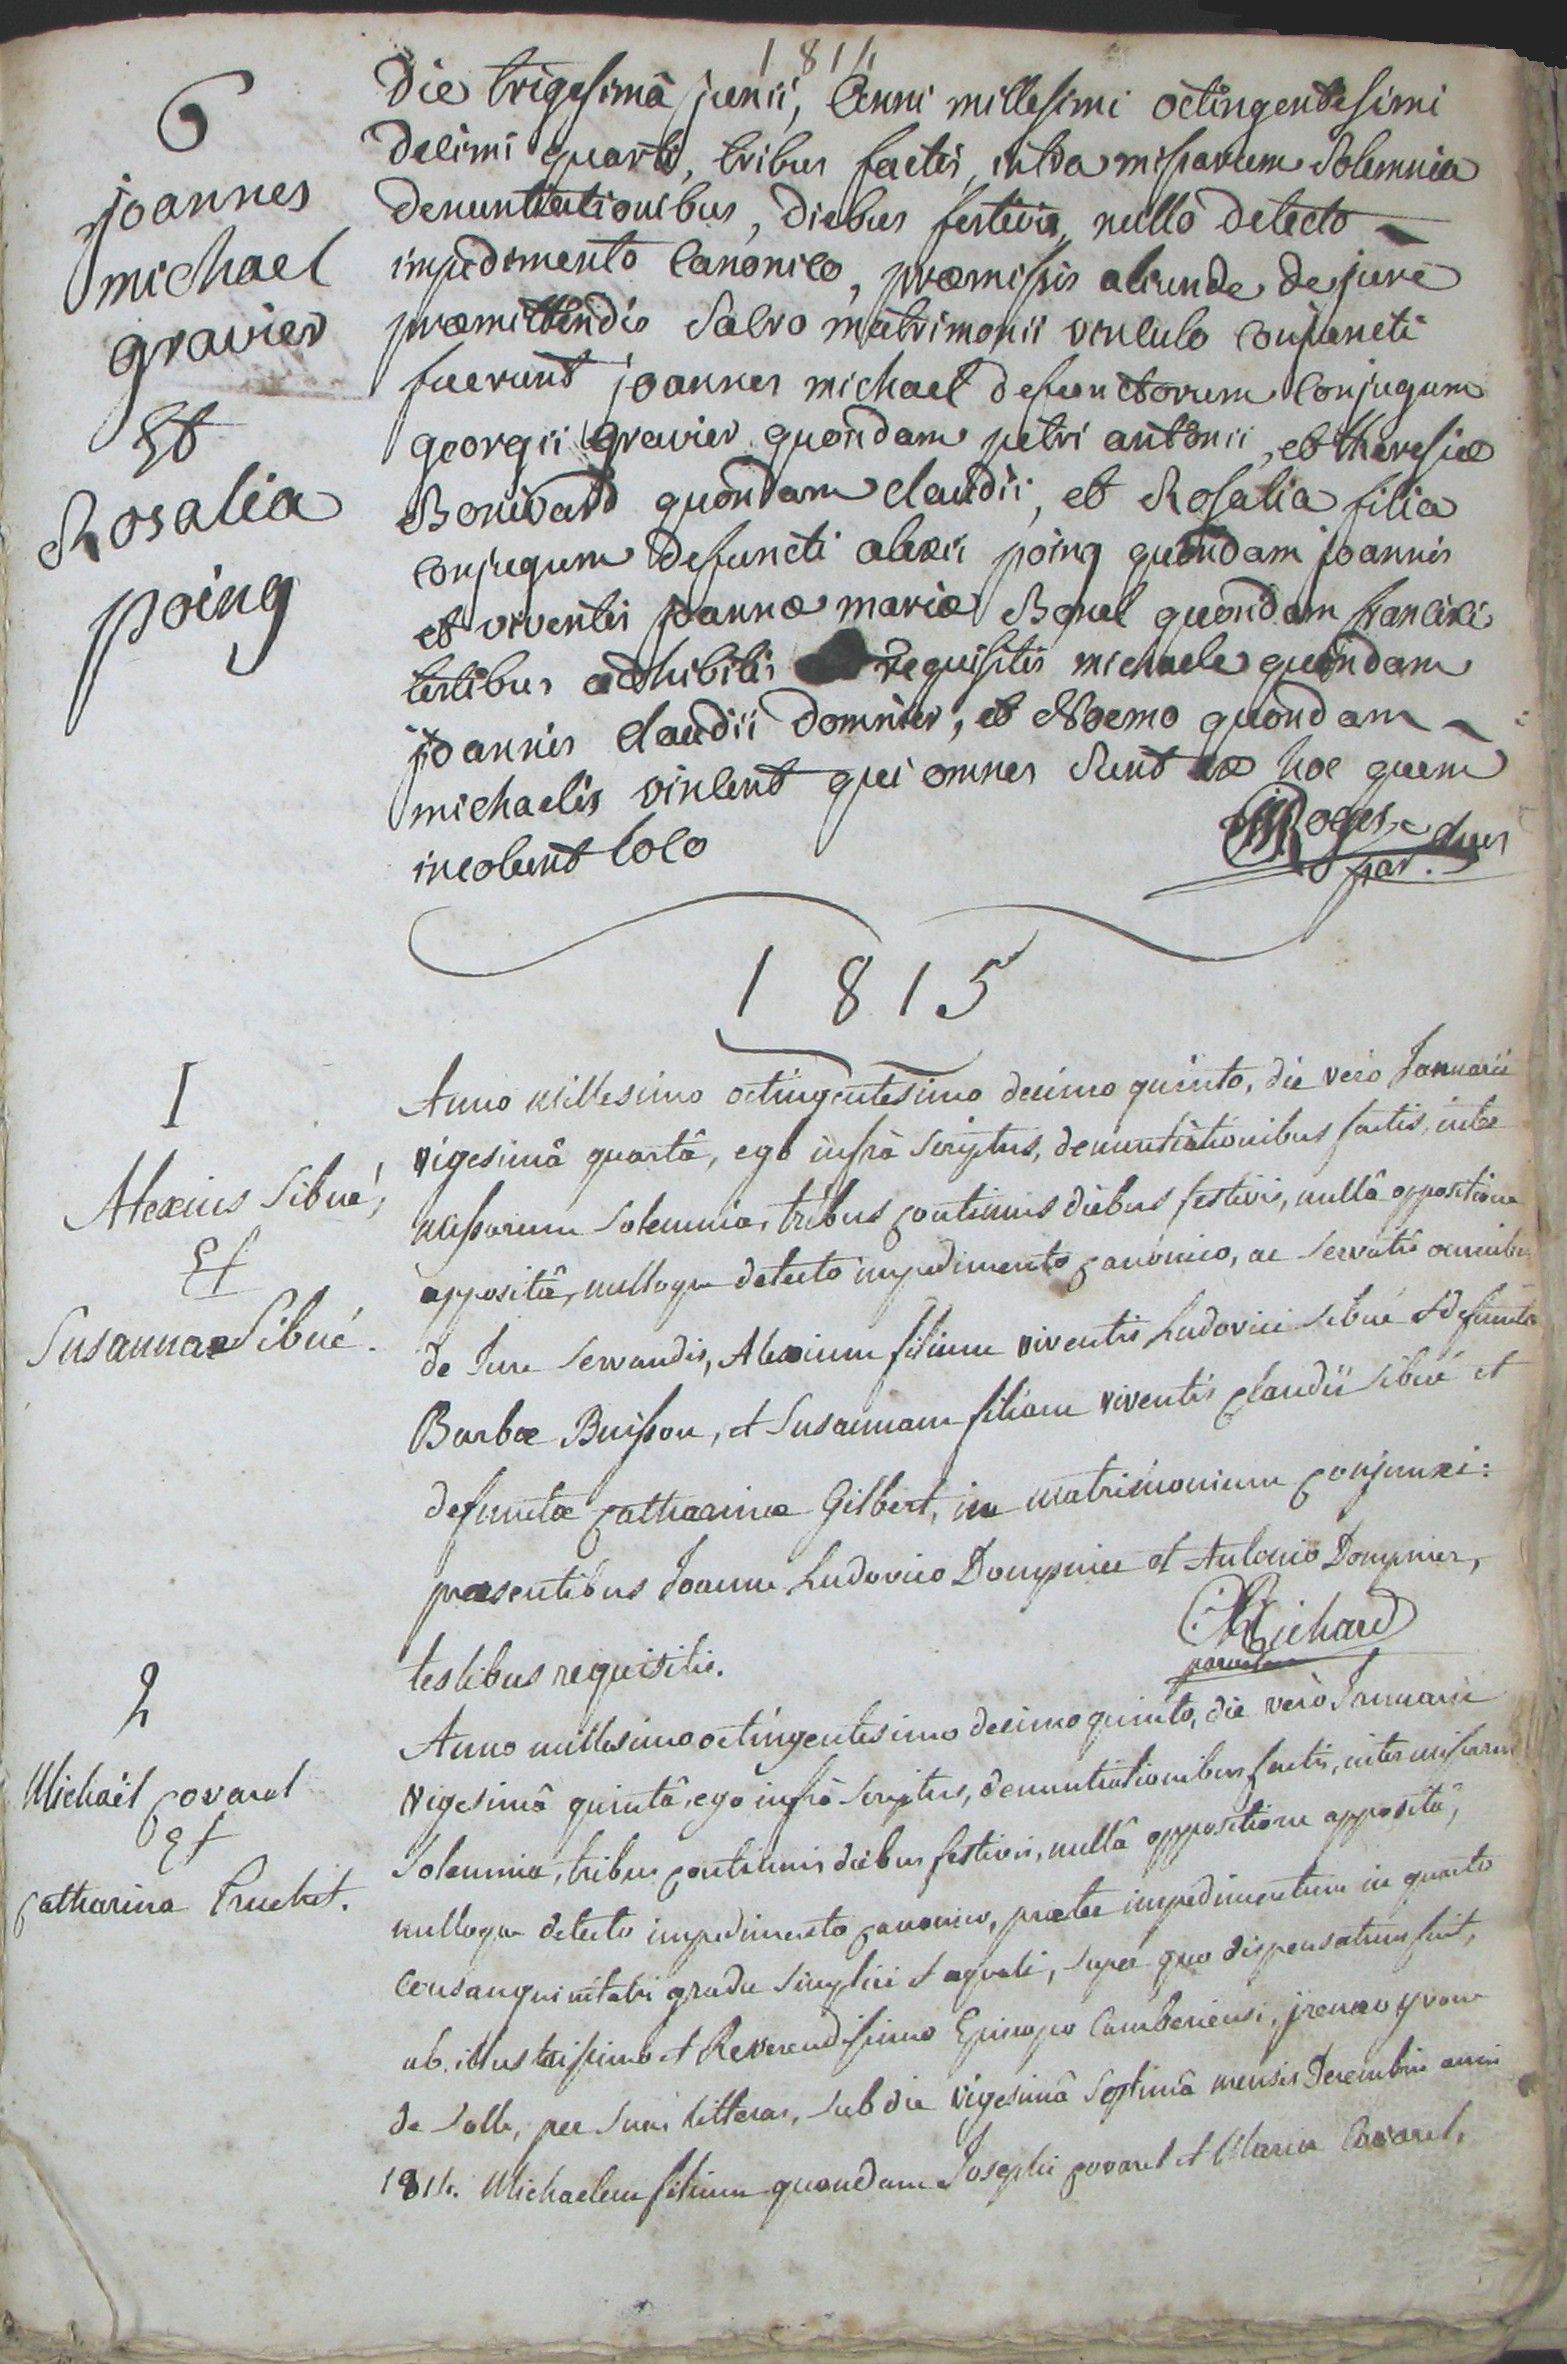 1814
6
joannes
michael
gravier
Et
Rosalia
poing
Die trigesimâ junii, Anni millesimi octingentesimi
decimi quarti, tribus factis, intra missarum Solemnia
denuntiationibus, diebus festivis, nullo detecto
impedimento Canonico, præmissis aliunde de jure
præmittendis Salvo matrimonii vinculo conjuncti
fuerunt joannes michael defunctorum Conjugum
georgii gravier quondam petri antonii, et theresiæ
Bonivard quondam claudii, et Rosalia filia
conjugum defuncti alexii poing quondam joannis
et viventis joannæ mariæ Bonel quondam francisci
testibus adhibitis requisitis michaele quondam
joannis claudii Domnier, et Noemo quondam
michaelis vincent qui omnes Sunt ex hoc quem
incolunt loco
Roges
par.
1815
I
Alexius Sibué,
Et
Susanna Sibué.
Anno millesimo octingentesimo decimo quinto, die verò Januarii
vigesimâ quartâ, ego infrà scriptus, denuntiationibus factis, inter
missarum solemnia, tribus continuis diebus festivis, nullâ oppositione
appositâ, nulloque detecto impedimento canonico, ac servatis omnibus
de Jure servandis, Alexium filium viventis Ludovici Sibué et defunctæ
Barbæ Buisson, et Susannam filiam viventis Claudii Sibué et
defunctæ Catharinæ Gilbert, in matrimonium conjunxi:
præsentibus Joanne Ludovico Dompnier et Antonio Dompnier,
testibus requisitis.
Richard
2
Michaël Covarel
Et
Catharina Truchet.
Anno millesimo octingentesimo decimo quinto, die verò Januarii
vigesimâ quintâ, ego infrà scriptus, denuntiationibus factis, inter missarum
solemnia, tribus continuis diebus festivis, nullâ oppositione appositâ,
nulloque detecto impedimento canonico, præter impedimentum in quarto
consanguinitatis gradu simplici et æquali, super quo dispensatum fuit,
ab illustrissimo et Reverendissimo Episcopo Camberiensi, jrenæo yvone
de Solle, per suas litteras, sub die vigesimâ septimâ mensis Decembris anni
1814. Michaelem filium quondam Josephi Covarel et Mariæ Covarel,